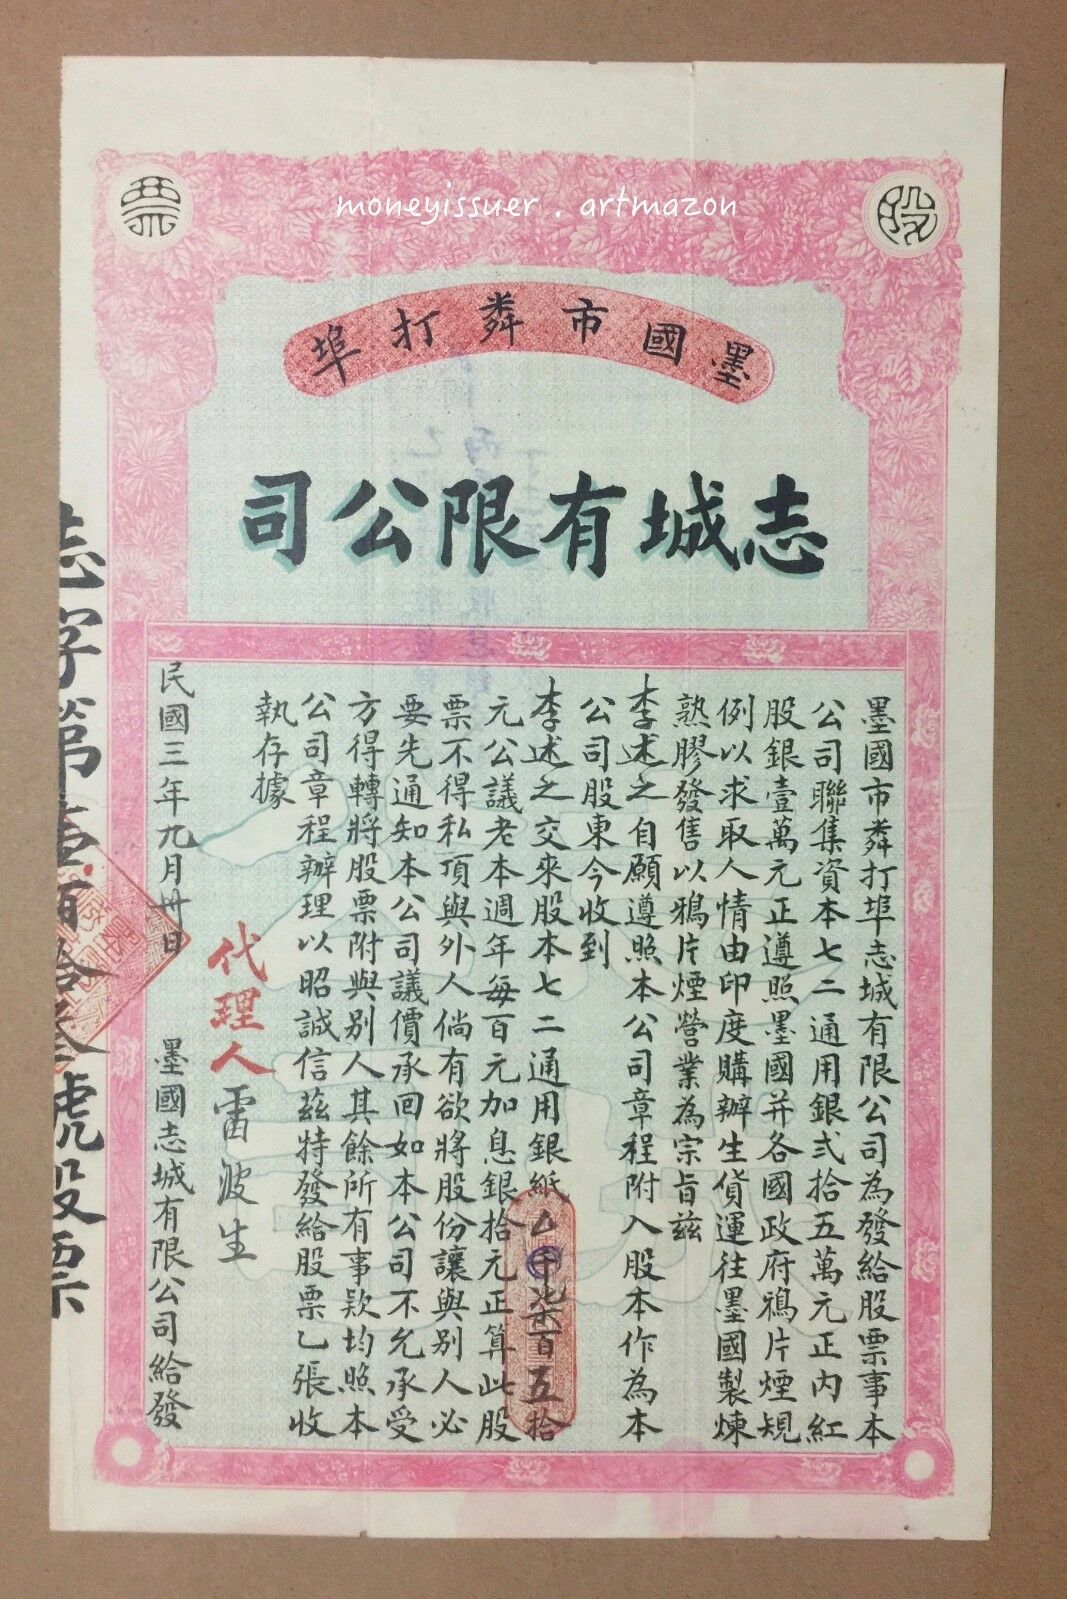 moneyissuer . artmazon
股票
墨國市粦打埠
志城有限公司
墨國市粦打埠志城有限公司為發給股票事本
公司聯集資本七二通用銀弍拾五萬元正內紅
股銀壹萬元正遵照墨國并各國政府鴉片煙規
例以求取人情由印度購辦生貨運往墨國製煉
熟膠發售以鴉片煙營業為宗旨茲
李述之自願遵照本公司章程附入股本作為本
公司股東今收到
李述之交來股本七二通用銀紙 千柒百五拾
元公議老本週年每百元加息銀拾元正算此股
票不得私頂與外人倘有欲將股份讓與別人必
要先通知本公司議價承回如本公司不允承受
方得轉將股票附與別人其餘所有事欵均照本
公司章程辦理以昭誠信茲特發給股票乙張收
執存據
代理人雷波生
民國三年九月卅日 墨國志城有限公司給發
志字第壹百拾叁號股票